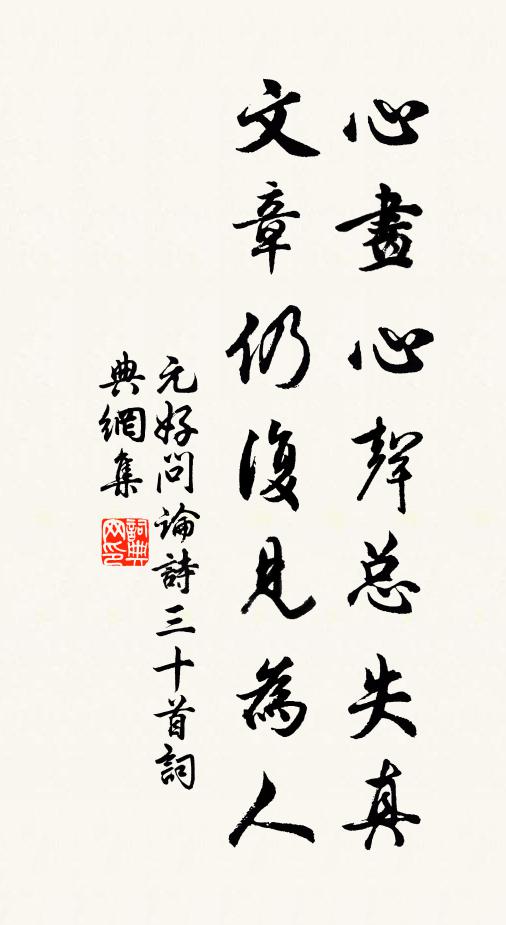 心畫心聲总失真
文章仍復見為人
元好问論詩三十首詞
典網集
詞典
网印